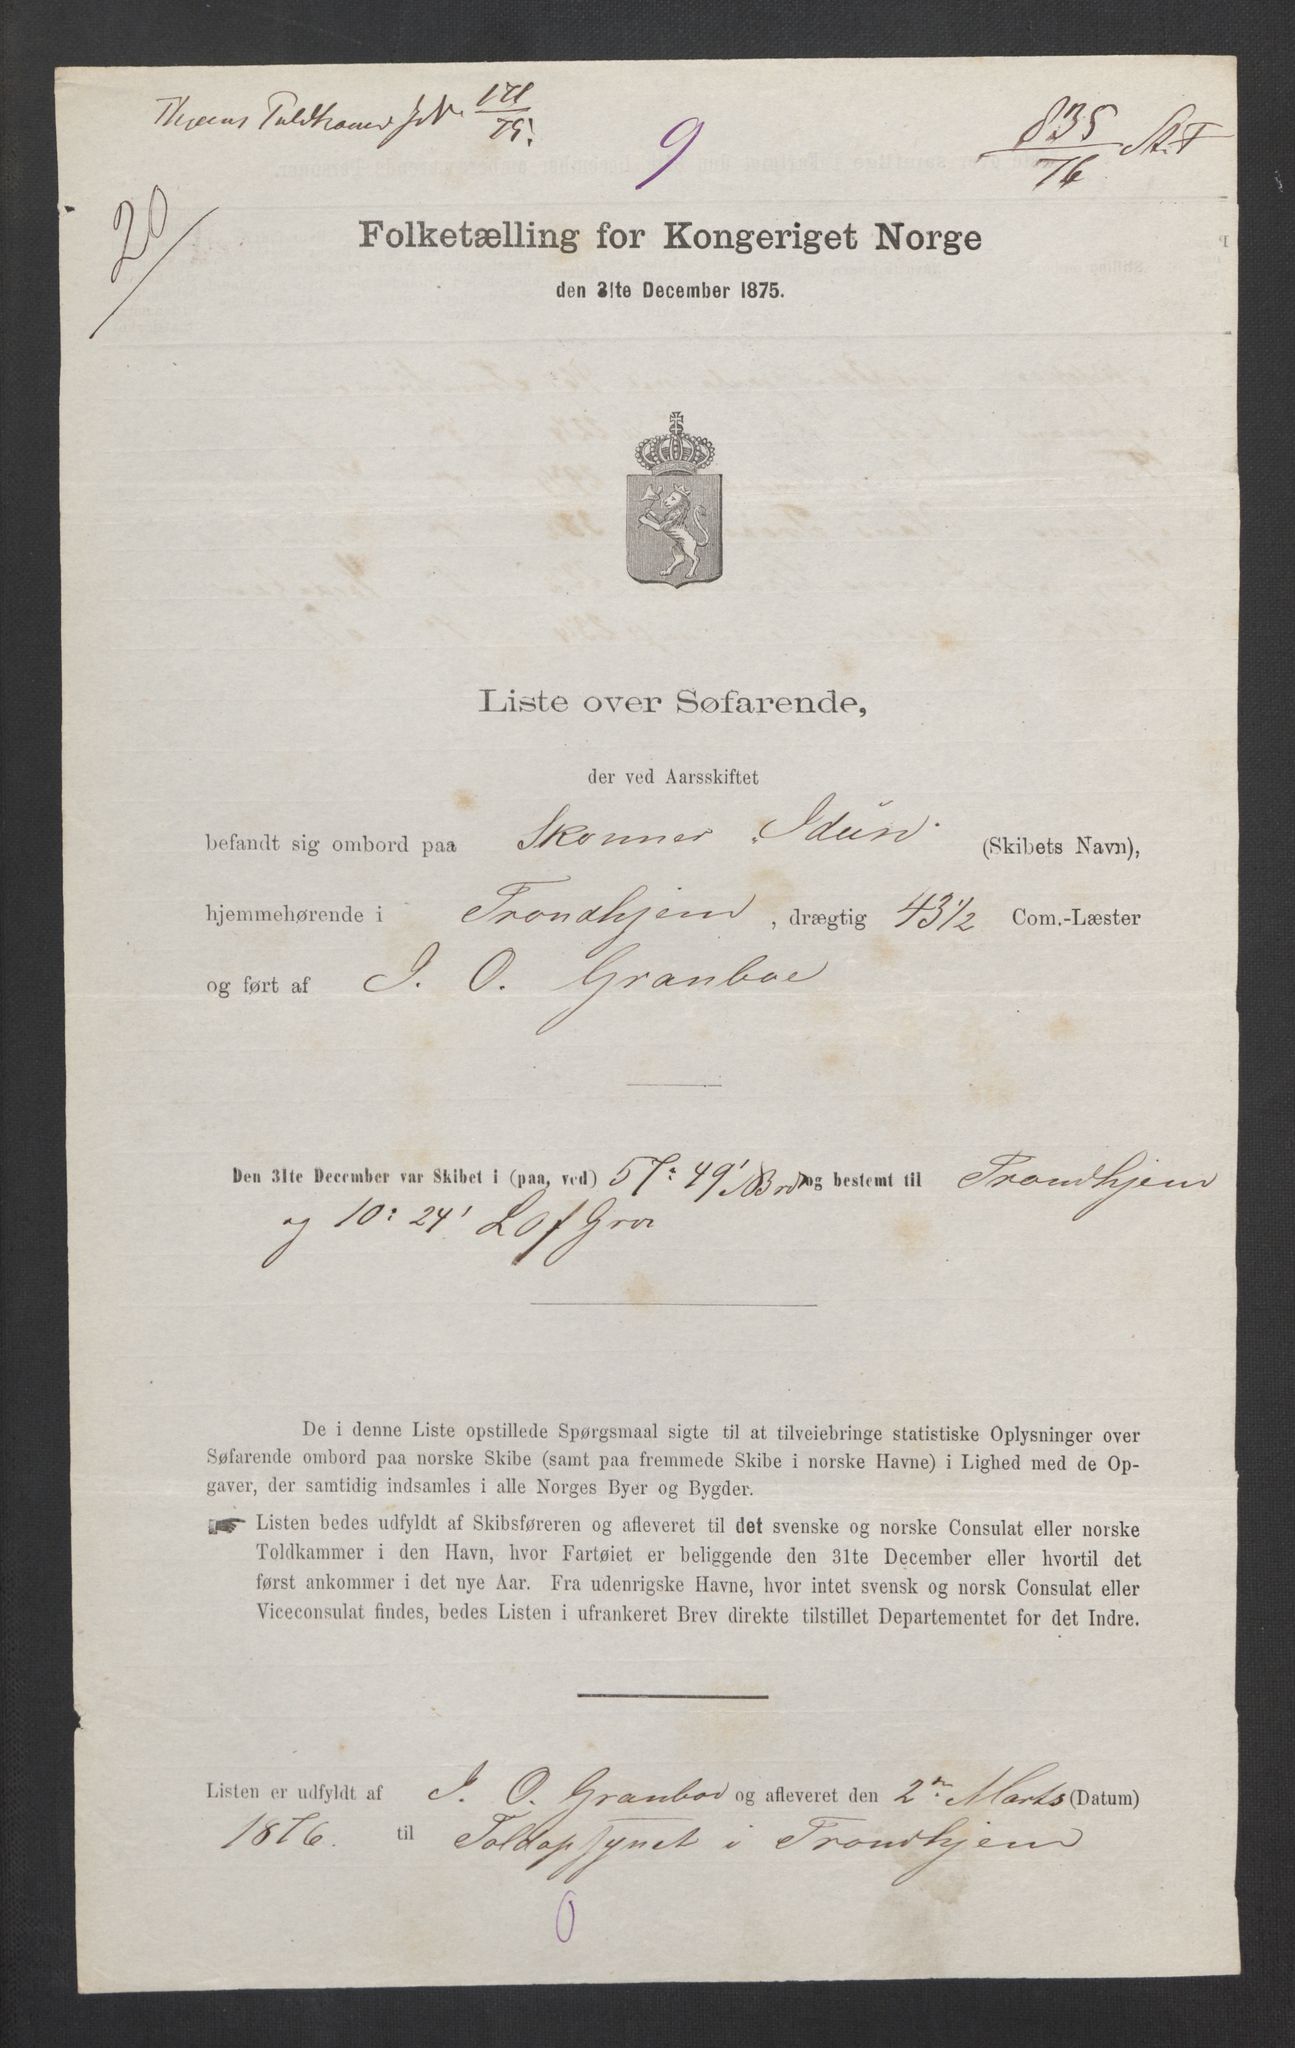 Thjems Toldkamer JN 171/75.
9
835/76 St. T
20/
Folketælling for Kongeriget Norge
den 31te December 1875.
Liste over Søfarende,
der ved Aarsskiftet
befandt sig ombord paa Skonner "Idun" (Skibets Navn),
hjemmehørende i Trondhjem, drægtig 43 1/2 Com.-Læster
og ført af J. O. Granboe
Den 31te December var Skibet i (paa, ved) 57° 49' N Brd og bestemt til Trondhjem
og 10° 24' L of Gro
De i denne Liste opstillede Spørgsmaal sigte til at tilveiebringe statistiske Oplysninger over
Søfarende ombord paa norske Skibe (samt paa fremmede Skibe i norske Havne) i Lighed med de Op-
gaver, der samtidig indsamles i alle Norges Byer og Bygder.
☛ Listen bedes udfyldt af Skibsføreren og afleveret til det svenske og norske Consulat eller norske
Toldkammer i den Havn, hvor Fartøiet er beliggende den 31te December eller hvortil det
først ankommer i det nye Aar. Fra udenrigske Havne, hvor intet svensk og norsk Consulat eller
Viceconsulat findes, bedes Listen i ufrankeret Brev direkte tilstillet Departementet for det Indre.
Listen er udfyldt af J. O. Granboe og afleveret den 2n Marts (Datum)
1876. til Toldopsynet i Trondhjem
0